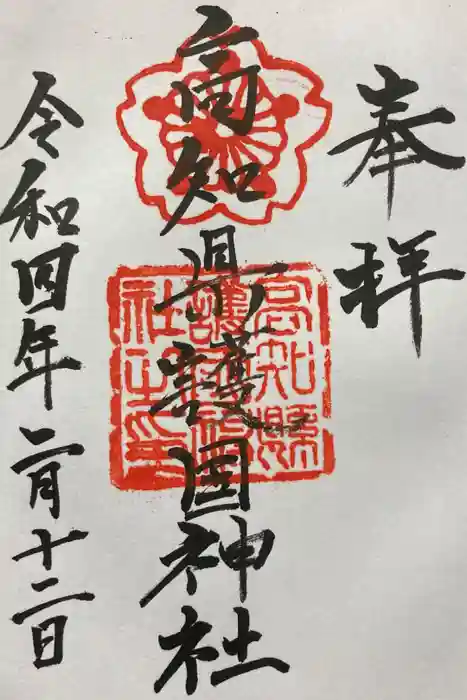 奉拝
高知県護国神社
令和四年二月十二日
高知縣
護國神
社之印